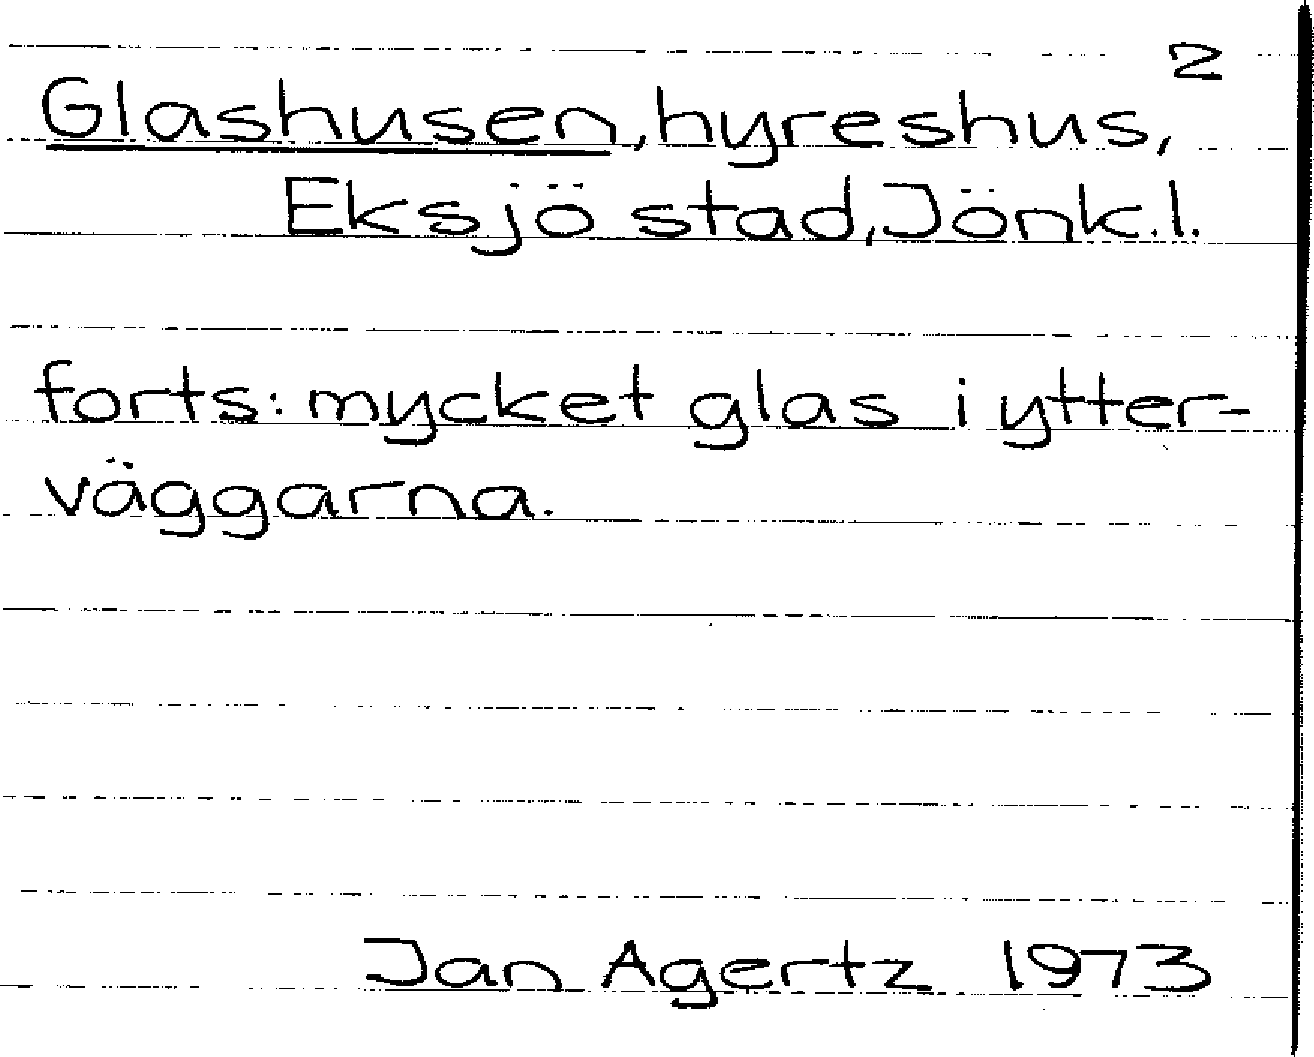 2
Glashusen, hyreshus,
Eksjö stad, Jönk.l.
forts: mycket glas i ytter-
väggarna.
Jan Agertz 1973